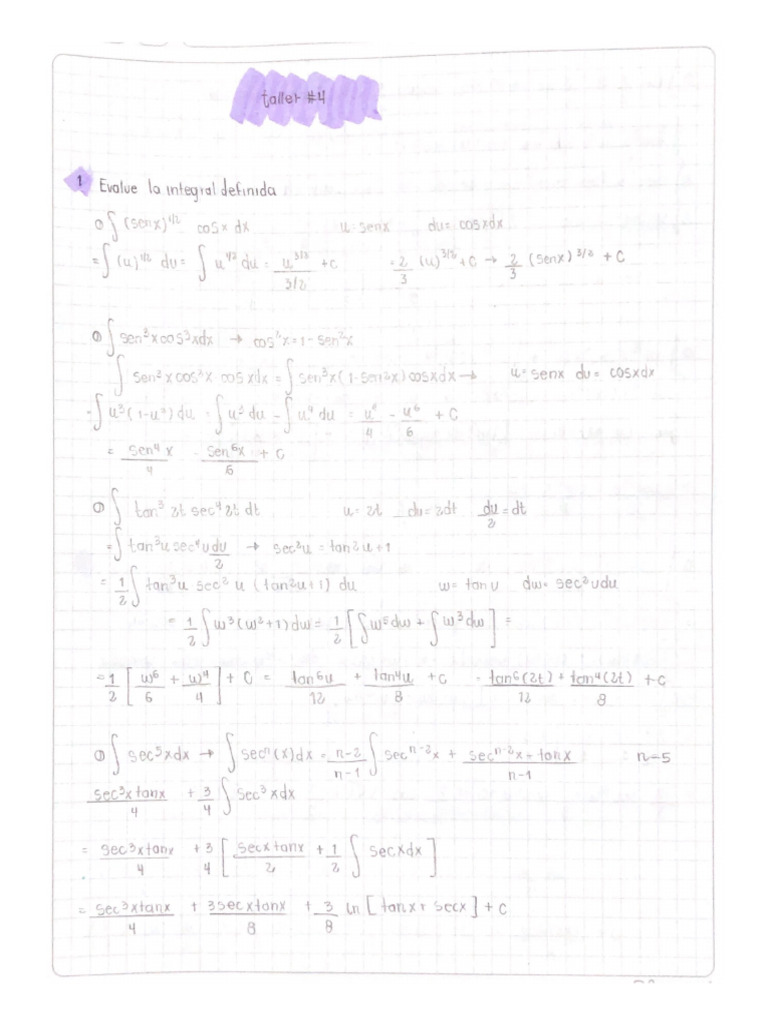 taller #4
1 Evalue la integral definida
① ∫ (senx)^1/2 cosx dx u= senx du= cosxdx
= ∫ (u)^1/2 du = ∫ u^1/2 du = u^3/2 / 3/2 + c = 2/3 (u)^3/2 + c → 2/3 (senx)^3/2 + C
① ∫ sen³xcos³xdx → cos²x = 1 - sen²x
∫ sen³xcos²x cosxdx = ∫ sen³x (1-sen2x) cosxdx → u= senx du= cosxdx
= ∫ u³(1-u²) du = ∫ u³ du - ∫ u^5 du = u^4/4 - u^6/6 + C
= sen⁴x/4 - sen⁶x/6 + C
① ∫ tan³ 2t sec⁴ 2t dt u= 2t du= 2dt du/2 = dt
= ∫ tan³u sec⁴u du/2 → sec²u = tan2u+1
= 1/2 ∫ tan³u sec²u (tan2u+1) du w= tan u dw= sec²udu
= 1/2 ∫ w³(w²+1)dw = 1/2 [∫ w⁵dw + ∫ w³dw] =
= 1/2 [w⁶/6 + w⁴/4] + C = tan⁶u/12 + tan4u/8 + C = tan⁶(2t)/12 + tan⁴(2t)/8 + C
① ∫ sec⁵xdx → ∫ secⁿ(x)dx = n-2/n-1 ∫ sec^n-2 x + sec^n-2 x · tanx/n-1 n=5
sec³xtanx/4 + 3/4 ∫ sec³xdx
= sec³xtanx/4 + 3/4 [secxtanx/2 + 1/2 ∫ secxdx]
= sec³xtanx/4 + 3secxtanx/8 + 3/8 ln [tanx+secx] + C